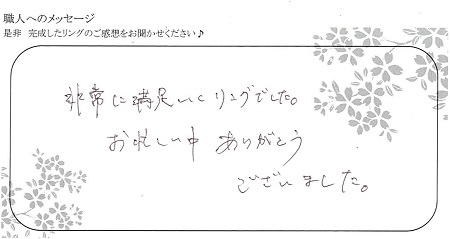 職人へのメッセージ
是非 完成したリングのご感想をお聞かせください♪
非常に満足いくリングでした。
お忙しい中 ありがとう
ございました。